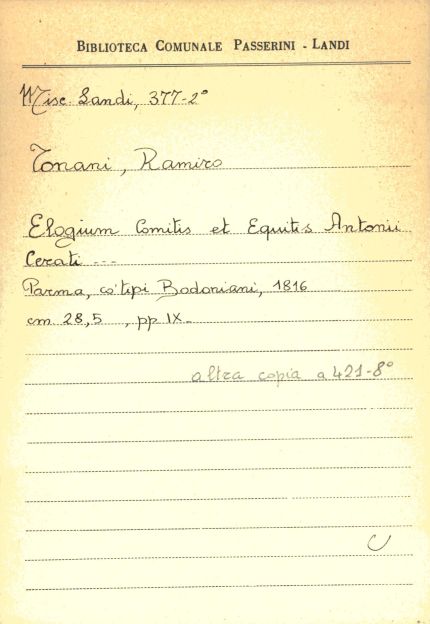 BIBLIOTECA COMUNALE PASSERINI - LANDI
Misc. Landi, 377-2°
Tonani, Ramiro
Elogium Comitis et Equitis Antonii
Cerati ---
Parma, co' tipi Bodoniani, 1816
cm 28,5 , pp IX.
altra copia a 421-8°
C